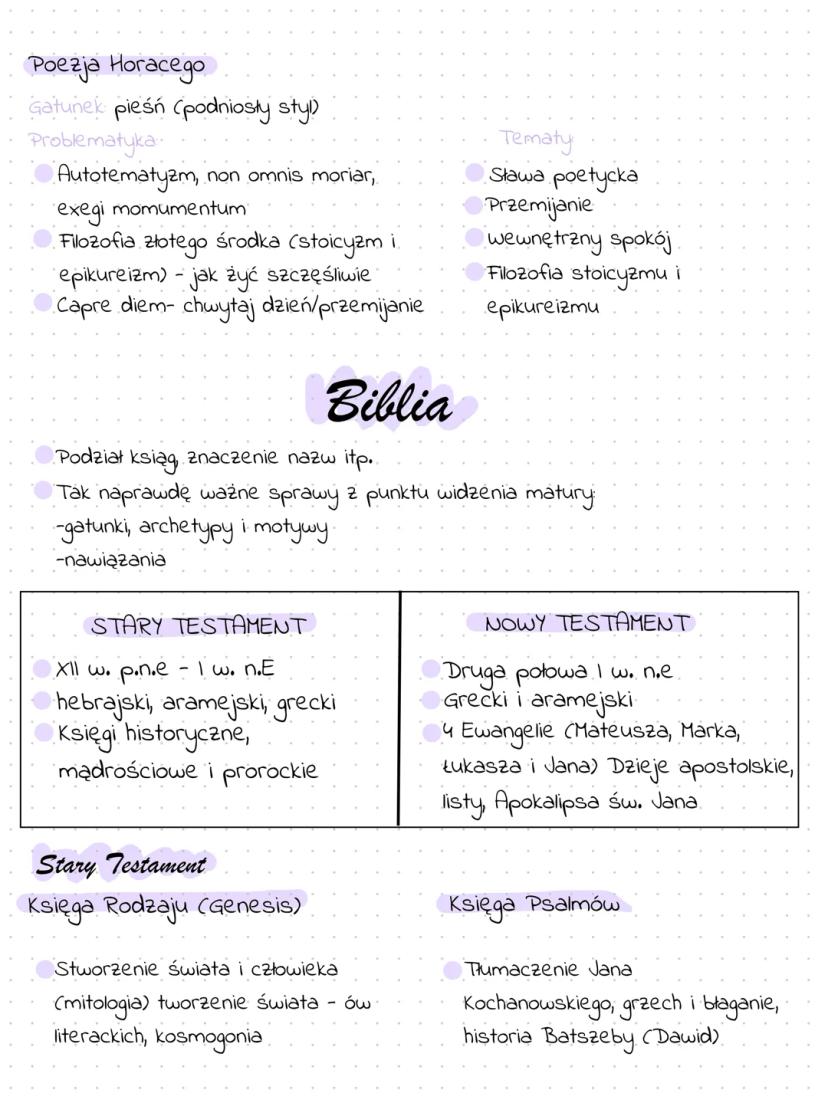 Poezja Horacego
Gatunek: pieśń (podniosły styl)
Problematyka:
Autotematyzm, non omnis moriar,
exegi momumentum
Filozofia złotego środka (stoicyzm i
epikureizm) - jak żyć szczęśliwie
Capre diem- chwytaj dzień/przemijanie
Tematy:
Sława poetycka
Przemijanie
Wewnętrzny spokój
Filozofia stoicyzmu i
epikureizmu
Biblia
Podział ksiąg, znaczenie nazw itp.
Tak naprawdę ważne sprawy z punktu widzenia matury:
-gatunki, archetypy i motywy
-nawiązania
STARY TESTAMENT
XII w. p.n.e - I w. n.E
hebrajski, aramejski, grecki
Księgi historyczne,
mądrościowe i prorockie
NOWY TESTAMENT
Druga połowa I w. n.e
Grecki i aramejski
4 Ewangelie (Mateusza, Marka,
Łukasza i Jana) Dzieje apostolskie,
listy, Apokalipsa św. Jana
Stary Testament
Księga Rodzaju (Genesis)
Stworzenie świata i człowieka
(mitologia) tworzenie świata - ów
literackich, kosmogonia
Księga Psalmów
Tłumaczenie Jana
Kochanowskiego, grzech i błaganie,
historia Batszeby (Dawid)